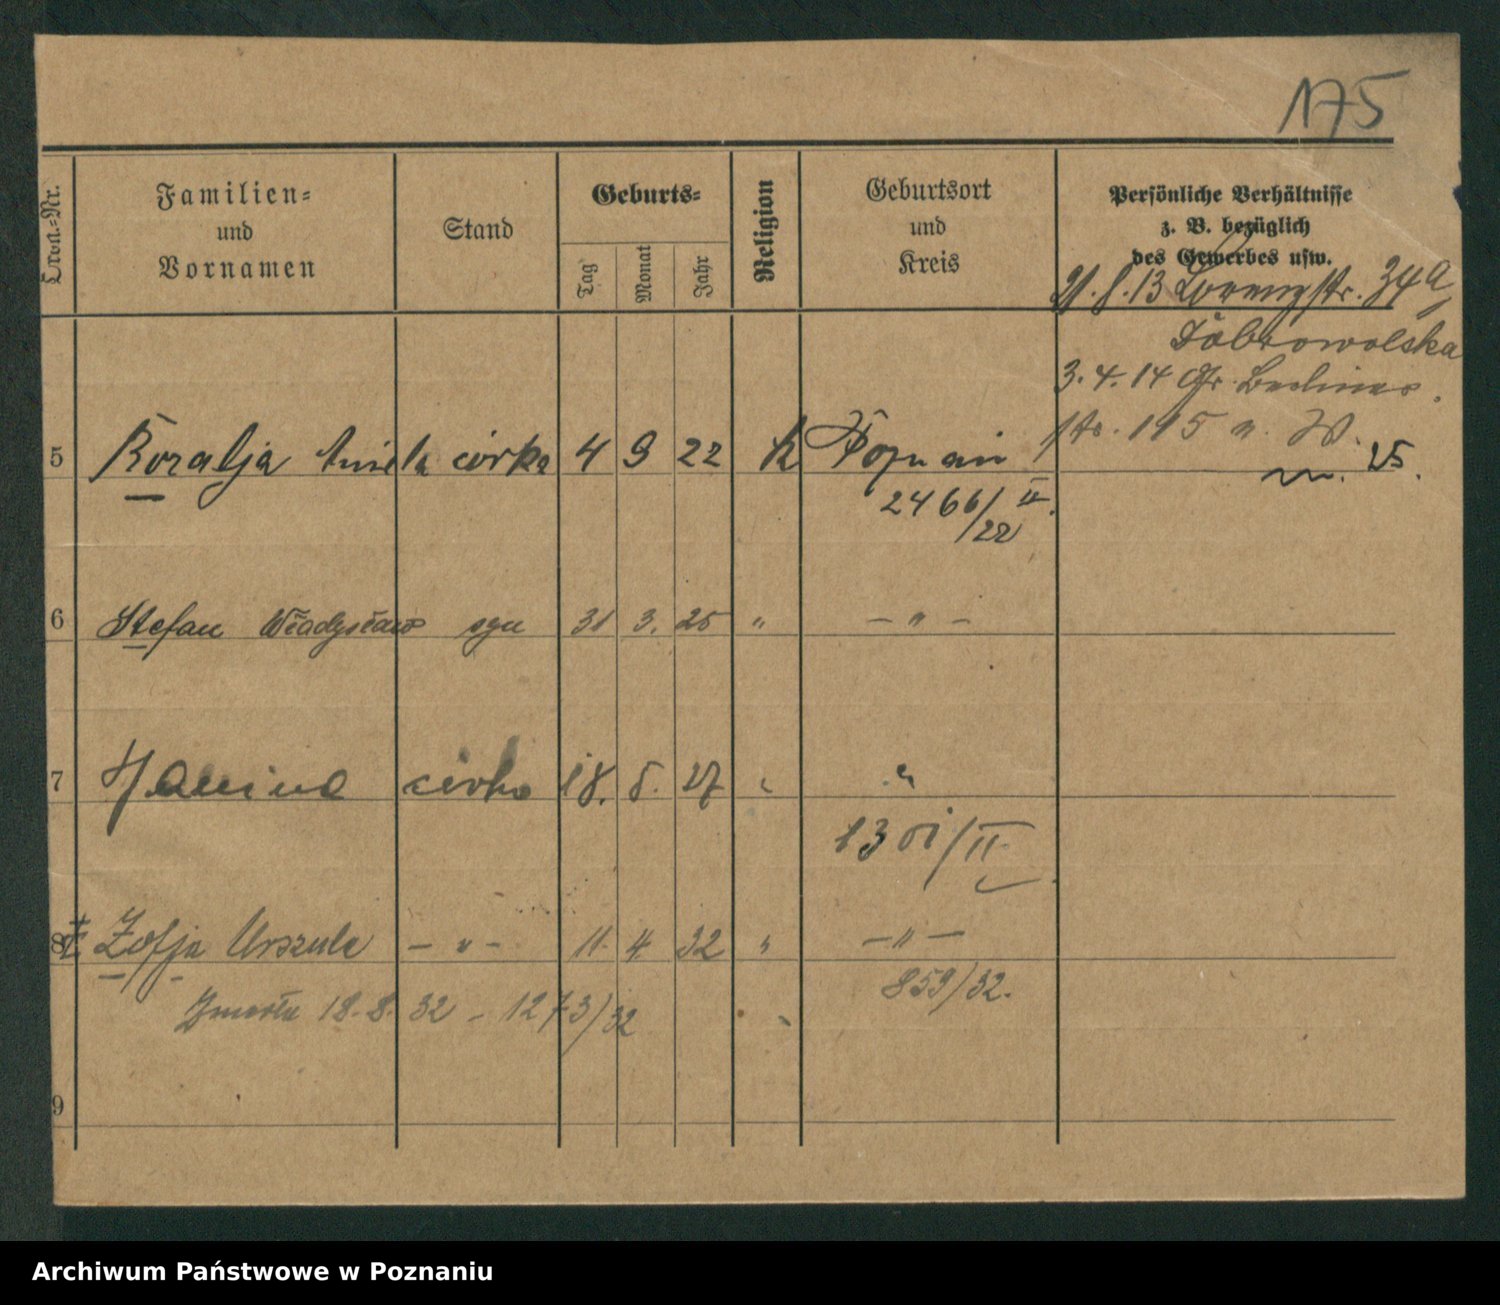 175
Lfd.-Nr.
Familien-
und
Vornamen
Stand
Geburts-
Tag
Monat
Jahr
Religion
Geburtsort
und
Kreis
Persönliche Verhältnisse
z. B. bezüglich
des Gewerbes usw.
21.8.13 Lorenzstr. 34a
Dobrowolska
3.4.14 Gr. Berliner
str. 195
25.
5 Rozalja Aniela córka 4 9 22 k Poznań
2466/II
/22
6 Stefan Władysław syn 31 3. 25 " – " –
7 Janina córka 18. 5. 27 " "
1301/II
8 Zofja Urszula – " – 11. 4. 32 " – " –
859/32.
Zmarła 18.8.32 – 1273/32
9
Archiwum Państwowe w Poznaniu